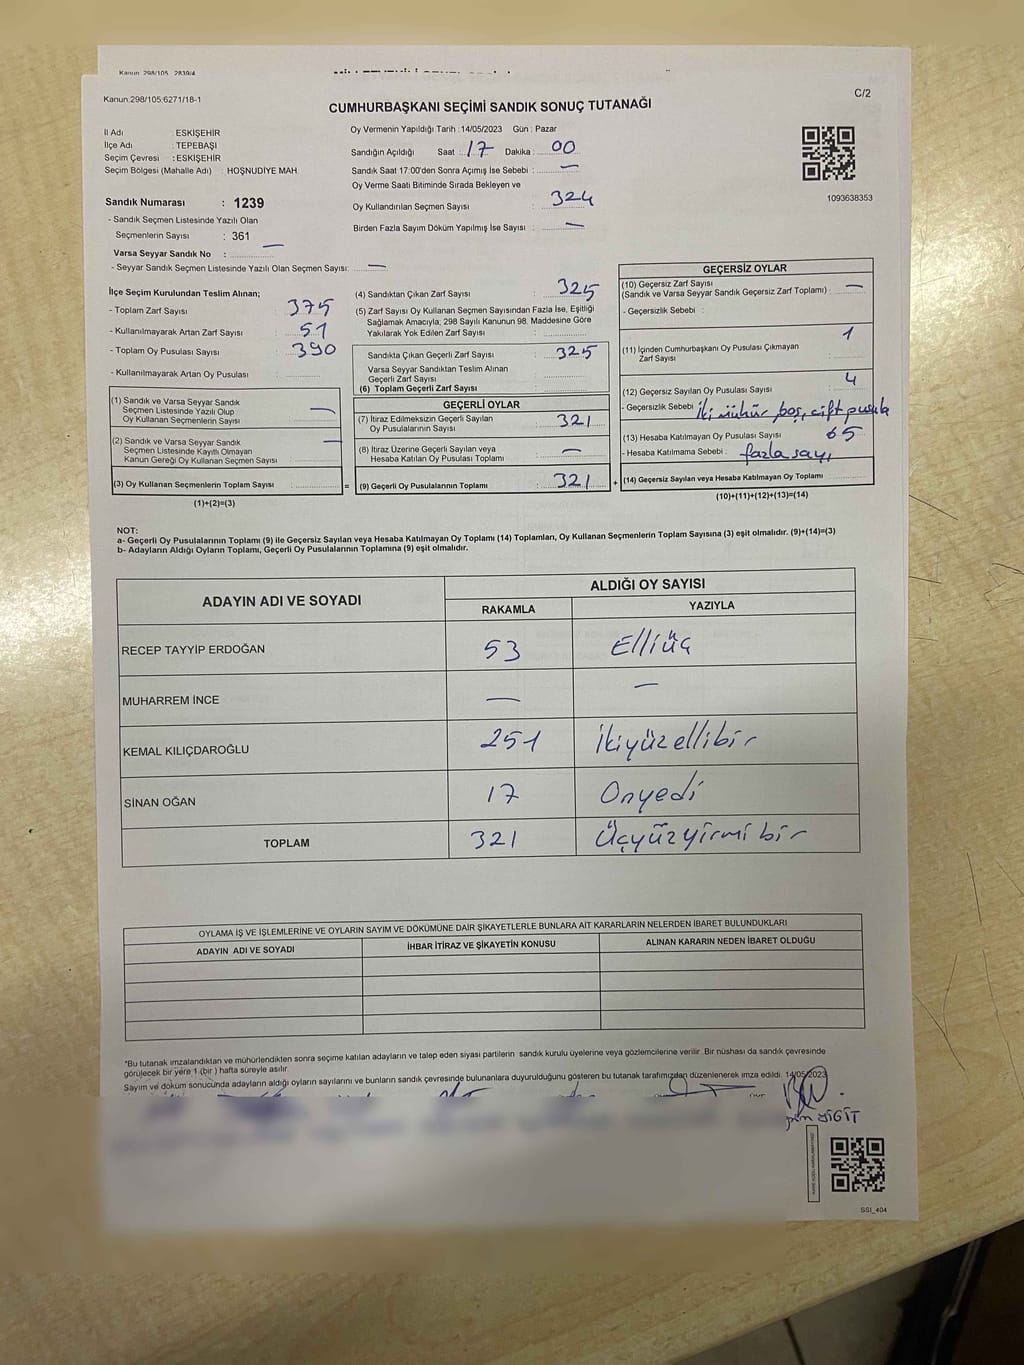 Kanun 298/105 2839/4
Kanun:298/105;6271/18-1
C/2
CUMHURBAŞKANI SEÇİMİ SANDIK SONUÇ TUTANAĞI
İl Adı : ESKİŞEHİR
İlçe Adı : TEPEBAŞI
Seçim Çevresi : ESKİŞEHİR
Seçim Bölgesi (Mahalle Adı) : HOŞNUDİYE MAH
Oy Vermenin Yapıldığı Tarih :14/05/2023 Gün : Pazar
Sandığın Açıldığı Saat : 17 Dakika : 00
Sandık Saat 17:00'den Sonra Açımış İse Sebebi : —
Oy Verme Saati Bitiminde Sırada Bekleyen ve
Oy Kullandırılan Seçmen Sayısı : 324
Birden Fazla Sayım Döküm Yapılmış İse Sayısı : —
1093638353
Sandık Numarası : 1239
- Sandık Seçmen Listesinde Yazılı Olan
Seçmenlerin Sayısı : 361
Varsa Seyyar Sandık No : —
- Seyyar Sandık Seçmen Listesinde Yazılı Olan Seçmen Sayısı: —
İlçe Seçim Kurulundan Teslim Alınan;
- Toplam Zarf Sayısı : 375
- Kullanılmayarak Artan Zarf Sayısı : 51
- Toplam Oy Pusulası Sayısı : 390
- Kullanılmayarak Artan Oy Pusulası :
(1) Sandık ve Varsa Seyyar Sandık
Seçmen Listesinde Yazılı Olup
Oy Kullanan Seçmenlerin Sayısı : —
(2) Sandık ve Varsa Seyyar Sandık
Seçmen Listesinde Kayıtlı Olmayan
Kanun Gereği Oy Kullanan Seçmen Sayısı : —
(3) Oy Kullanan Seçmenlerin Toplam Sayısı :
(1)+(2)=(3)
(4) Sandıktan Çıkan Zarf Sayısı : 325
(5) Zarf Sayısı Oy Kullanan Seçmen Sayısından Fazla İse, Eşitliği
Sağlamak Amacıyla, 298 Sayılı Kanunun 98. Maddesine Göre
Yakılarak Yok Edilen Zarf Sayısı :
Sandıkta Çıkan Geçerli Zarf Sayısı : 325
Varsa Seyyar Sandıktan Teslim Alınan
Geçerli Zarf Sayısı :
(6) Toplam Geçerli Zarf Sayısı :
GEÇERLİ OYLAR
(7) İtiraz Edilmeksizin Geçerli Sayılan
Oy Pusulalarının Sayısı : 321
(8) İtiraz Üzerine Geçerli Sayılan veya
Hesaba Katılan Oy Pusulası Toplamı : —
= (9) Geçerli Oy Pusulalarının Toplamı : 321 +
GEÇERSİZ OYLAR
(10) Geçersiz Zarf Sayısı
(Sandık ve Varsa Seyyar Sandık Geçersiz Zarf Toplamı) : —
- Geçersizlik Sebebi :
(11) İçinden Cumhurbaşkanı Oy Pusulası Çıkmayan
Zarf Sayısı : 1
(12) Geçersiz Sayılan Oy Pusulası Sayısı : 4
- Geçersizlik Sebebi : İki mühür boş, çift pusula
(13) Hesaba Katılmayan Oy Pusulası Sayısı : 65
- Hesaba Katılmama Sebebi : fazla sayı
(14) Geçersiz Sayılan veya Hesaba Katılmayan Oy Toplamı :
(10)+(11)+(12)+(13)=(14)
NOT:
a- Geçerli Oy Pusulalarının Toplamı (9) ile Geçersiz Sayılan veya Hesaba Katılmayan Oy Toplamı (14) Toplamları, Oy Kullanan Seçmenlerin Toplam Sayısına (3) eşit olmalıdır. (9)+(14)=(3)
b- Adayların Aldığı Oyların Toplamı, Geçerli Oy Pusulalarının Toplamına (9) eşit olmalıdır.
ADAYIN ADI VE SOYADI ALDIĞI OY SAYISI
RAKAMLA YAZIYLA
RECEP TAYYİP ERDOĞAN 53 Elliüç
MUHARREM İNCE — —
KEMAL KILIÇDAROĞLU 251 İkiyüzellibir
SİNAN OĞAN 17 Onyedi
TOPLAM 321 Üçyüzyirmibir
OYLAMA İŞ VE İŞLEMLERİNE VE OYLARIN SAYIM VE DÖKÜMÜNE DAİR ŞİKAYETLERLE BUNLARA AİT KARARLARIN NELERDEN İBARET BULUNDUKLARI
ADAYIN ADI VE SOYADI İHBAR İTİRAZ VE ŞİKAYETİN KONUSU ALINAN KARARIN NEDEN İBARET OLDUĞU
*Bu tutanak imzalandıktan ve mühürlendikten sonra seçime katılan adayların ve talep eden siyasi partilerin sandık kurulu üyelerine veya gözlemcilerine verilir. Bir nüshası da sandık çevresinde
görülecek bir yere 1 (bir ) hafta süreyle asılır.
Sayım ve döküm sonucunda adayların aldığı oyların sayılarını ve bunların sandık çevresinde bulunanlara duyurulduğunu gösteren bu tutanak tarafımızdan düzenlenerek imza edildi. 14/05/2023
YİĞİT
SSI_404